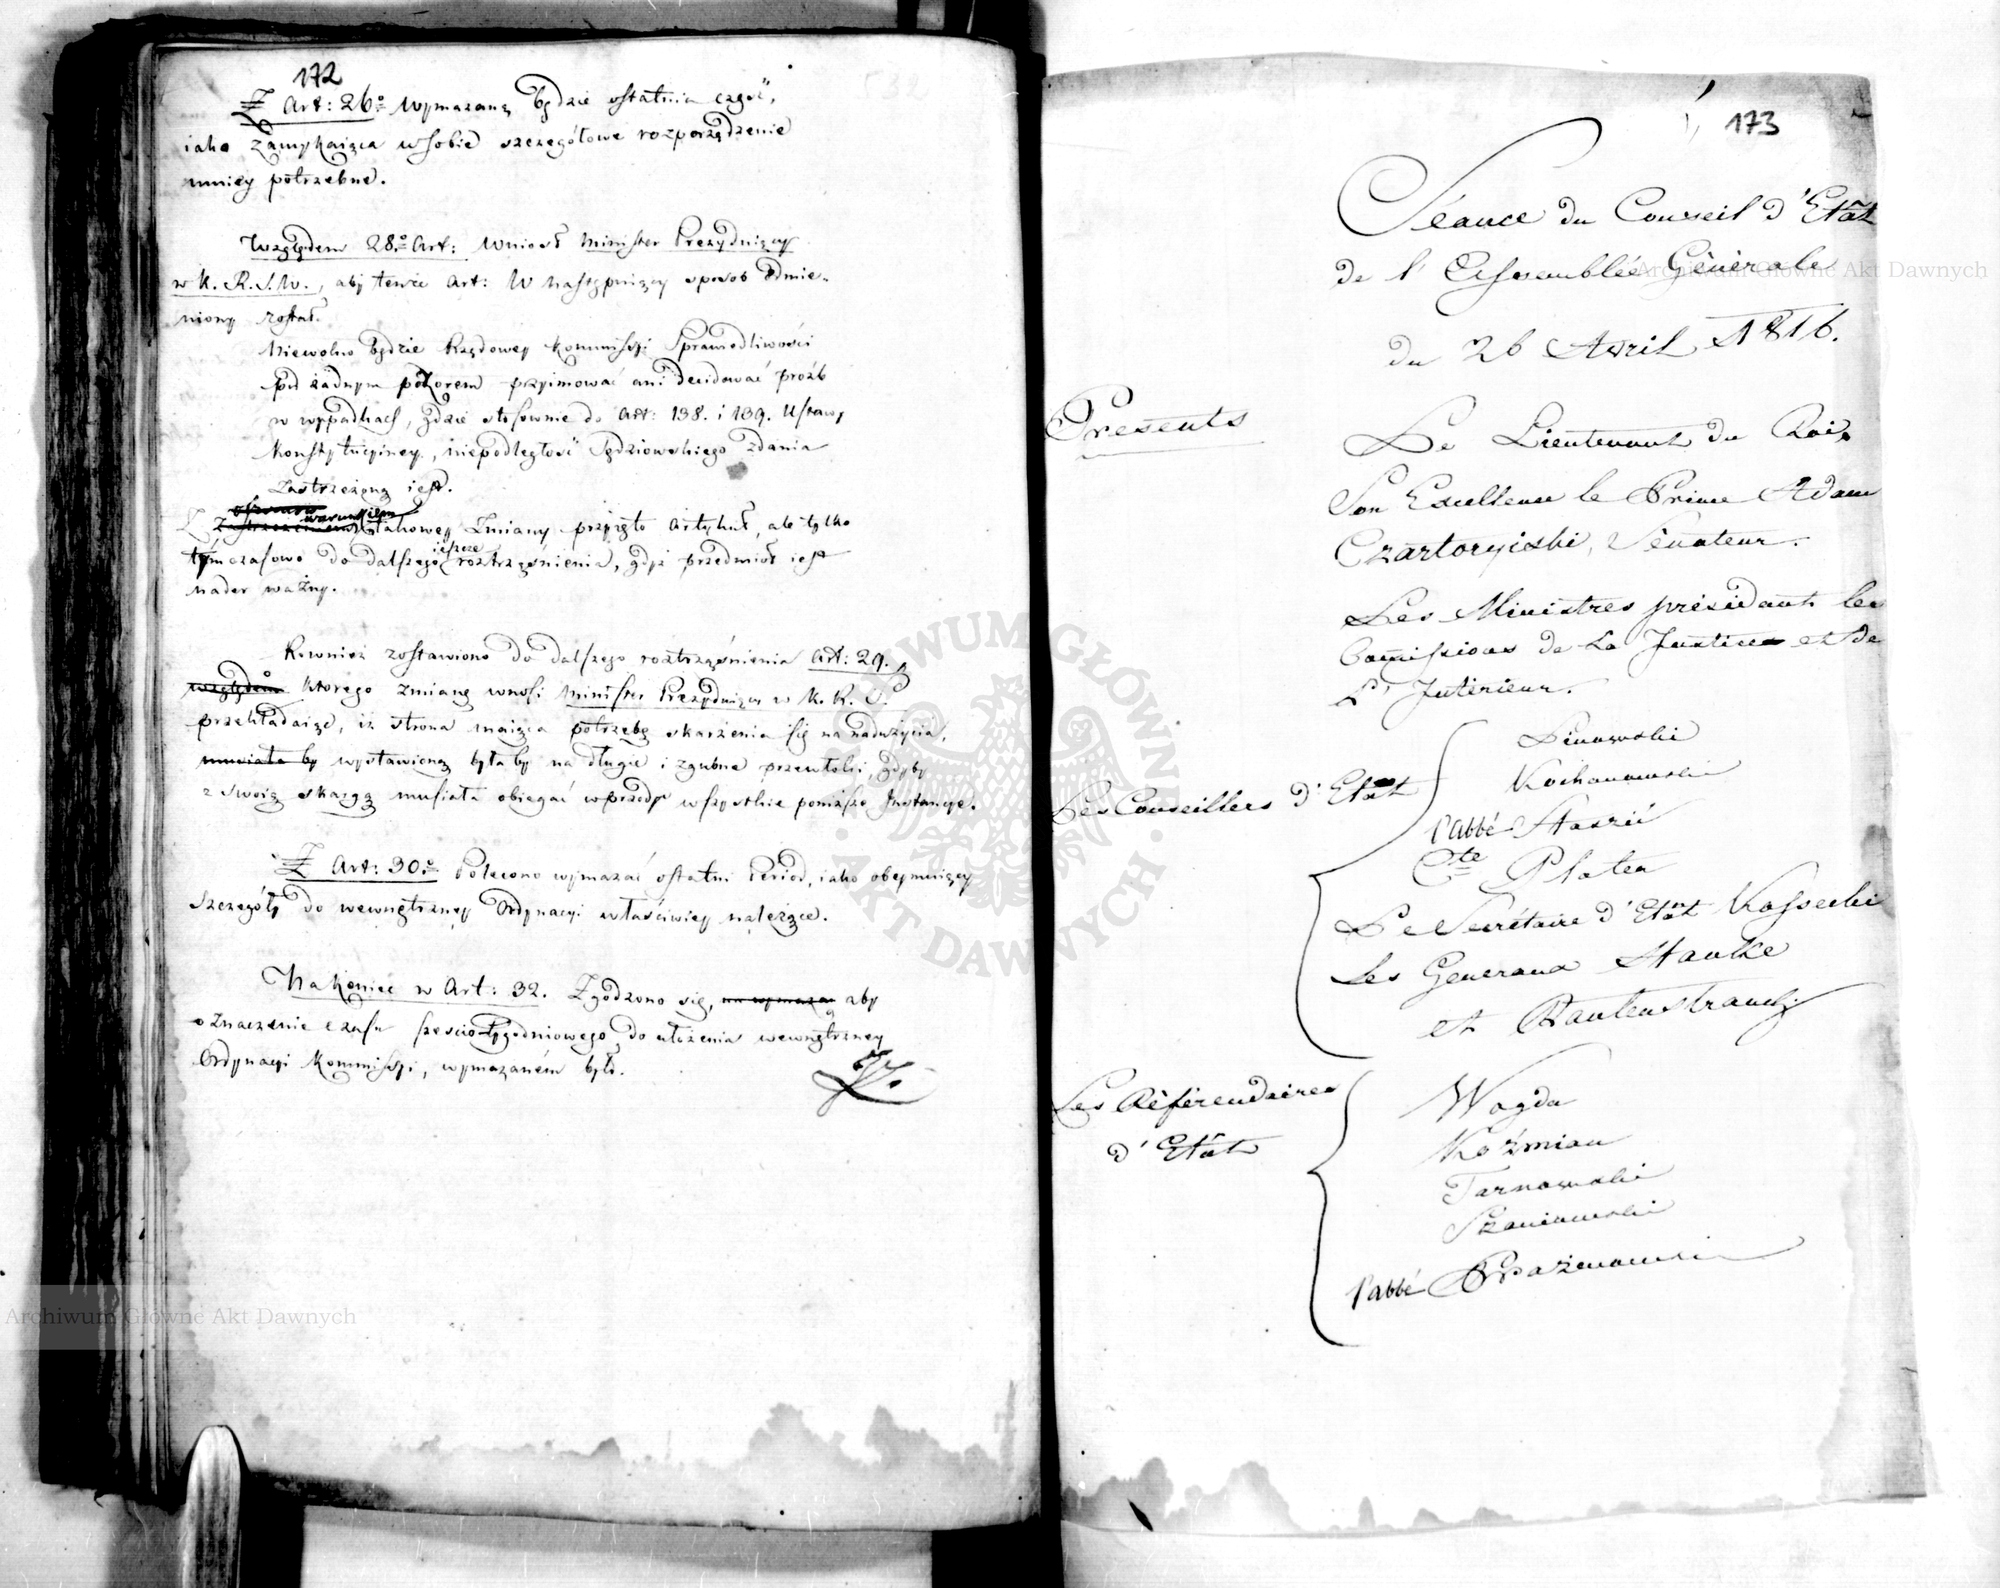 172
Z Art: 26º wymazaną będzie ostatnia część,
iako zamykaiąca w sobie szczegółowe rozporządzenie
mniey potrzebne.
Względem 28º Art: wniosł Minister Prezyduiący
w K. R. S. W., aby tenże Art: w następuiący sposob odmie-
niony został.
Niewolno będzie Rządowey Kommissyi Sprawiedliwości
pod żadnym pozorem przyimować ani decidować prośb
w wypadkach, gdzie stosownie do Art: 138. i 139. Ustawy
Konstytucyiney, niepodległość Sędziowskiego zdania
zastrzeżoną iest.
warunkiem
Z takowey zmiany przyięto Artykuł, ale tylko
tymczasowo do dalszego ieszcze roztrząśnienia, gdyż przedmiot iest
nader ważny.
Rownież zostawiono do dalszego roztrząśnienia Art: 29.
względem ktorego zmianę wnosi Minister Prezyduiący w K. R. S.
przekładaiąc, iż strona maiąca potrzebę skarżenia się na nadużycia,
musiała by wystawioną była by na długie i zgubne przewłoki, gdyby
z swoią skargą musiała obiegać wprzody wszystkie poniższe Instancye.
Z Art: 30º Polecono wymazać ostatni Period, iako obeymuiący
szczegóły do wewnętrzney Ordynacyi właściwiey należące.
Nakoniec w Art: 32. Zgodzono się, na wymazan aby
oznaczenie czasu sześciotygodniowego do ułożenia wewnętrzney
Ordynacyi Kommissyi, wymazaném było.
173
Séance du Conseil d'Etât
de l'Assemblée Générale
du 26 Avril 1816.
Présents
Le Lieutenant du Roi.
Son Excellence le Prince Adam
Czartoryiski, Sénateur.
Les Ministres présidant les
Comissions de La Justice et de
L'Intérieur.
Les Conseillers d'Etat
Linowski
Kochanowski
l'abbé Staszic
Cte Plater
Le Secrétaire d'Etât Kossecki
Les Generaux Hauke
et Rautenstrauch
Les Référendaires
d'Etât
Woyda
Koźmian
Tarnowski
Szaniawski
l'abbé Prażmowski
ARCHIWUM GŁÓWNE AKT DAWNYCH
Archiwum Główne Akt Dawnych
Archiwum Główne Akt Dawnych